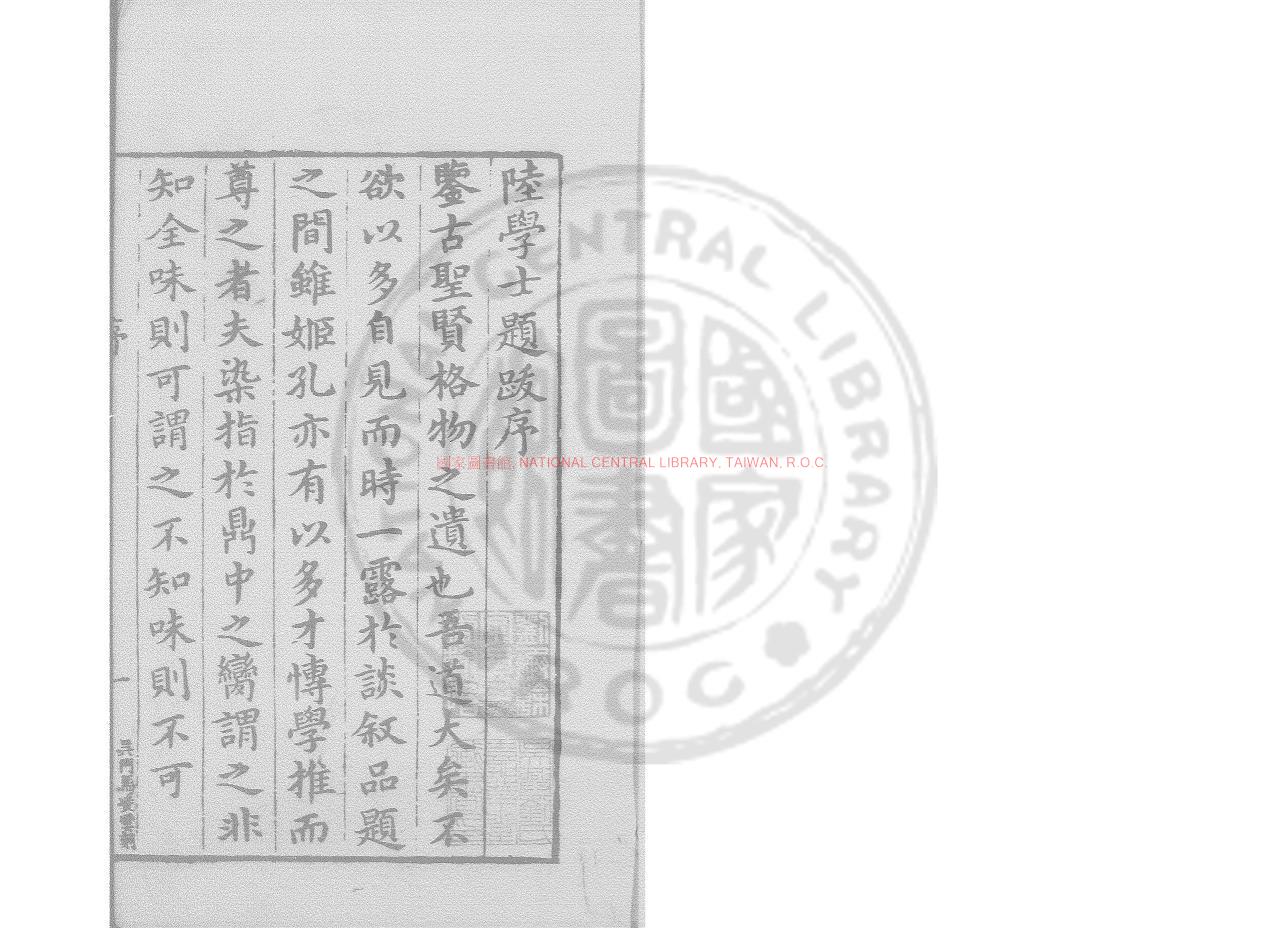 陸學士題跋序
鑒古聖賢格物之遺也吾道大矣不
欲以多自見而時一露於談叙品題
之間雖姬孔亦有以多才博學推而
尊之者夫染指於鼎中之臠謂之非
知全味則可謂之不知味則不可
序
一
國家圖書館, NATIONAL CENTRAL LIBRARY, TAIWAN, R.O.C.
NATIONAL CENTRAL LIBRARY
ROC
國家圖書館